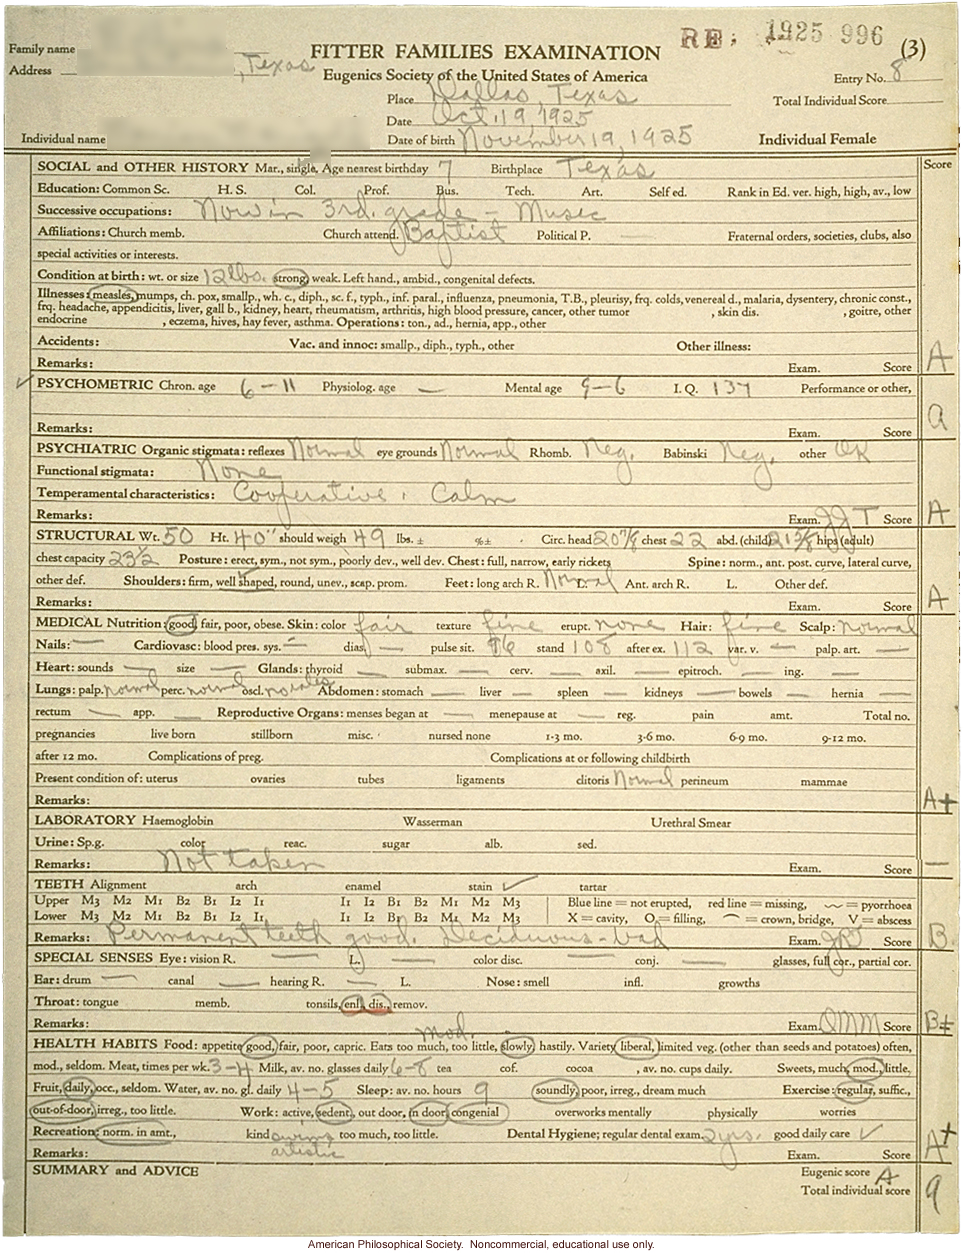 RE: 1925 996
(3)
Family name
FITTER FAMILIES EXAMINATION
Address , Texas
Eugenics Society of the United States of America
Entry No. 8
Place Dallas, Texas
Total Individual Score
Date Oct. 19, 1925
Individual name
Date of birth November 19, 1925
Individual Female
SOCIAL and OTHER HISTORY Mar., single, Age nearest birthday 7 Birthplace Texas Score
Education: Common Sc. H. S. Col. Prof. Bus. Tech. Art. Self ed. Rank in Ed. ver. high, high, av., low
Successive occupations: Now in 3rd. grade - Music
Affiliations: Church memb. Church attend. Baptist Political P. — Fraternal orders, societies, clubs, also
special activities or interests.
Condition at birth: wt. or size 12 lbs. strong, weak. Left hand., ambid., congenital defects.
Illnesses: measles, mumps, ch. pox, smallp., wh. c., diph., sc. f., typh., inf. paral., influenza, pneumonia, T.B., pleurisy, frq. colds, venereal d., malaria, dysentery, chronic const.,
frq. headache, appendicitis, liver, gall b., kidney, heart, rheumatism, arthritis, high blood pressure, cancer, other tumor , skin dis. , goitre, other
endocrine , eczema, hives, hay fever, asthma. Operations: ton., ad., hernia, app., other
Accidents: Vac. and innoc: smallp., diph., typh., other Other illness:
Remarks: Exam. Score A
PSYCHOMETRIC Chron. age 6-11 Physiolog. age — Mental age 9-6 I. Q. 137 Performance or other,
Remarks: Exam. Score A
PSYCHIATRIC Organic stigmata: reflexes Normal eye grounds Normal Rhomb. Neg. Babinski Neg. other OK
Functional stigmata: None
Temperamental characteristics: Cooperative, Calm
Remarks: Exam. JJT Score A
STRUCTURAL Wt. 50 Ht. 40" should weigh 49 lbs. ± %± . Circ. head 20 7/8 chest 22 abd. (child) 21 5/8 hips (adult)
chest capacity 23 1/2 Posture: erect, sym., not sym., poorly dev., well dev. Chest: full, narrow, early rickets Spine: norm., ant. post. curve, lateral curve,
other def. Shoulders: firm, well shaped, round, unev., scap. prom. Feet: long arch R. Normal L. Ant. arch R. L. Other def.
Remarks: Exam. Score A
MEDICAL Nutrition: good, fair, poor, obese. Skin: color fair texture fine erupt. none Hair: fine Scalp: normal
Nails: — Cardiovasc: blood pres. sys. — dias. — pulse sit. 96 stand 108 after ex. 112 var. v. — palp. art. —
Heart: sounds — size — Glands: thyroid — submax. — cerv. — axil. — epitroch. — ing. —
Lungs: palp. normal perc. normal oscl. no rales Abdomen: stomach — liver — spleen — kidneys — bowels — hernia —
rectum — app. — Reproductive Organs: menses began at — menopause at — reg. pain amt. Total no.
pregnancies live born stillborn misc. nursed none 1-3 mo. 3-6 mo. 6-9 mo. 9-12 mo.
after 12 mo. Complications of preg. Complications at or following childbirth
Present condition of: uterus ovaries tubes ligaments clitoris Normal perineum mammae
Remarks: A+
LABORATORY Haemoglobin Wasserman Urethral Smear
Urine: Sp.g. color reac. sugar alb. sed.
Remarks: Not taken Exam. Score —
TEETH Alignment arch enamel stain ✓ tartar
Upper M3 M2 M1 B2 B1 I2 I1 I1 I2 B1 B2 M1 M2 M3 Blue line = not erupted, red line = missing, = pyorrhoea
Lower M3 M2 M1 B2 B1 I2 I1 I1 I2 B1 B2 M1 M2 M3 X = cavity, O = filling, = crown, bridge, V = abscess
Remarks: Permanent teeth good. Deciduous - bad Exam. Score B
SPECIAL SENSES Eye: vision R. — L. — color disc. — conj. — glasses, full cor., partial cor.
Ear: drum — canal — hearing R. — L. Nose: smell infl. growths
Throat: tongue memb. tonsils, enl. dis., remov.
Remarks: Exam. Score B±
mod.
HEALTH HABITS Food: appetite good, fair, poor, capric. Eats too much, too little, slowly, hastily. Variety liberal, limited veg. (other than seeds and potatoes) often,
mod., seldom. Meat, times per wk. 3-4 Milk, av. no. glasses daily 6-8 tea cof. cocoa , av. no. cups daily. Sweets, much, mod., little.
Fruit, daily, occ., seldom. Water, av. no. gl. daily 4-5 Sleep: av. no. hours 9 soundly, poor, irreg., dream much Exercise: regular, suffic.,
out-of-door, irreg., too little. Work: active, sedent., out door, in door, congenial overworks mentally physically worries
Recreation: norm. in amt., kind swims too much, too little. Dental Hygiene; regular dental exam. 2 yrs. good daily care ✓
Remarks: artistic Exam. Score A+
SUMMARY and ADVICE Eugenic score A
Total individual score 9
American Philosophical Society. Noncommercial, educational use only.